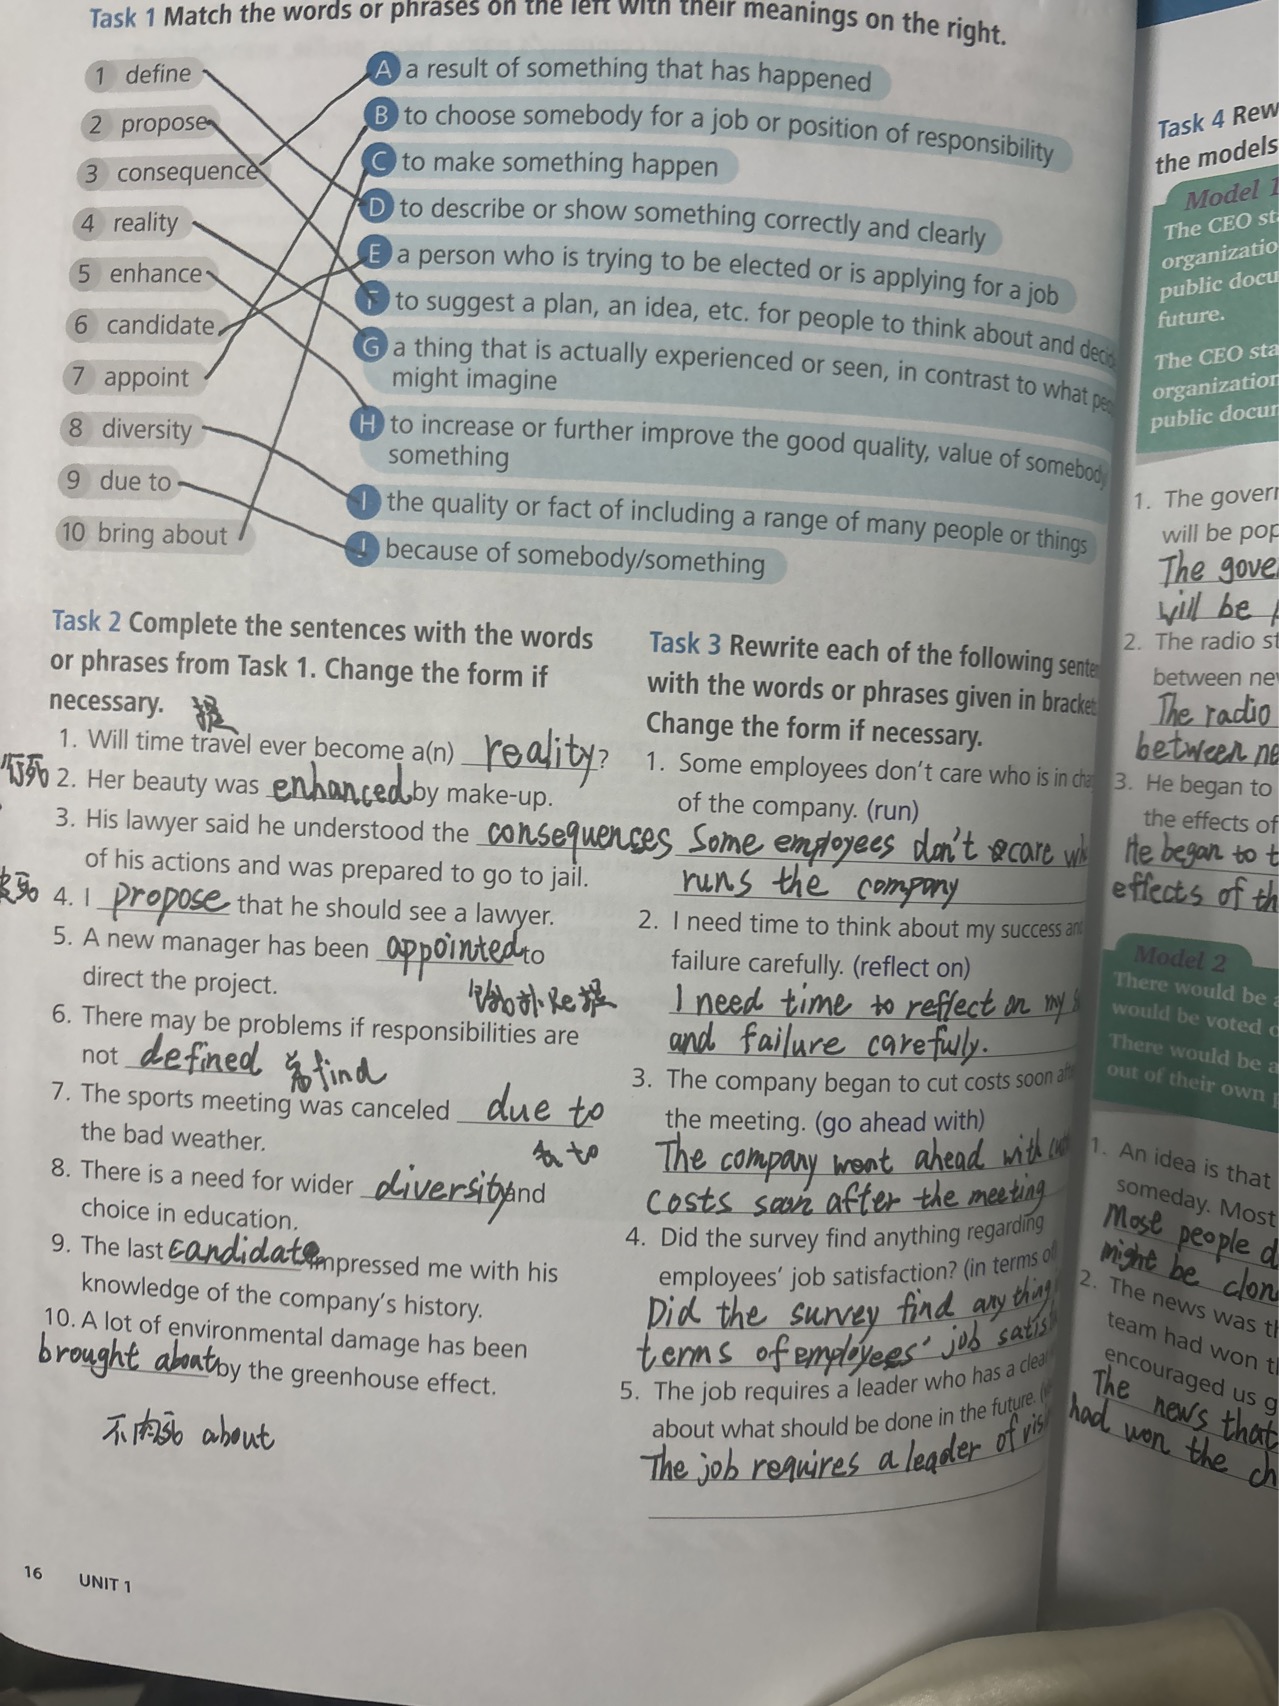 Task 1 Match the words or phrases on the left with their meanings on the right.
1 define
2 propose
3 consequence
4 reality
5 enhance
6 candidate
7 appoint
8 diversity
9 due to
10 bring about
A a result of something that has happened
B to choose somebody for a job or position of responsibility
C to make something happen
D to describe or show something correctly and clearly
E a person who is trying to be elected or is applying for a job
F to suggest a plan, an idea, etc. for people to think about and
G a thing that is actually experienced or seen, in contrast to what
might imagine
H to increase or further improve the good quality, value of somebody
something
I the quality or fact of including a range of many people or things
J because of somebody/something
Task 2 Complete the sentences with the words
or phrases from Task 1. Change the form if
necessary.
1. Will time travel ever become a(n) reality?
2. Her beauty was enhanced by make-up.
3. His lawyer said he understood the consequences
of his actions and was prepared to go to jail.
4. I propose that he should see a lawyer.
5. A new manager has been appointed to
direct the project.
6. There may be problems if responsibilities are
not defined find
7. The sports meeting was canceled due to
the bad weather.
to
8. There is a need for wider diversity and
choice in education.
9. The last candidate impressed me with his
knowledge of the company's history.
10. A lot of environmental damage has been
brought about by the greenhouse effect.
about
16 UNIT 1
Task 3 Rewrite each of the following
with the words or phrases given in
Change the form if necessary.
1. Some employees don't care who is in
of the company. (run)
Some employees don't care
runs the company
2. I need time to think about my success
failure carefully. (reflect on)
I need time to reflect on my
and failure carefully.
3. The company began to cut costs soon
the meeting. (go ahead with)
The company went ahead with
costs soon after the meeting
4. Did the survey find anything regarding
employees' job satisfaction? (in terms of
Did the survey find anything
terms of employees' job
5. The job requires a leader who has a
about what should be done in the future.
The job requires a leader of
Task 4
the models
Model 1
The CEO
public
future.
The CEO
organization
public
1. The
will be
The
will be
2. The radio
between
The radio
between
3. He began to
the effects of
He began to
effects of
Model 2
There would be
would be voted
There would be
out of their own
1. An idea is that
someday. Most
Most people
might be
2. The news was
team had won
encouraged us
The news that
had won the